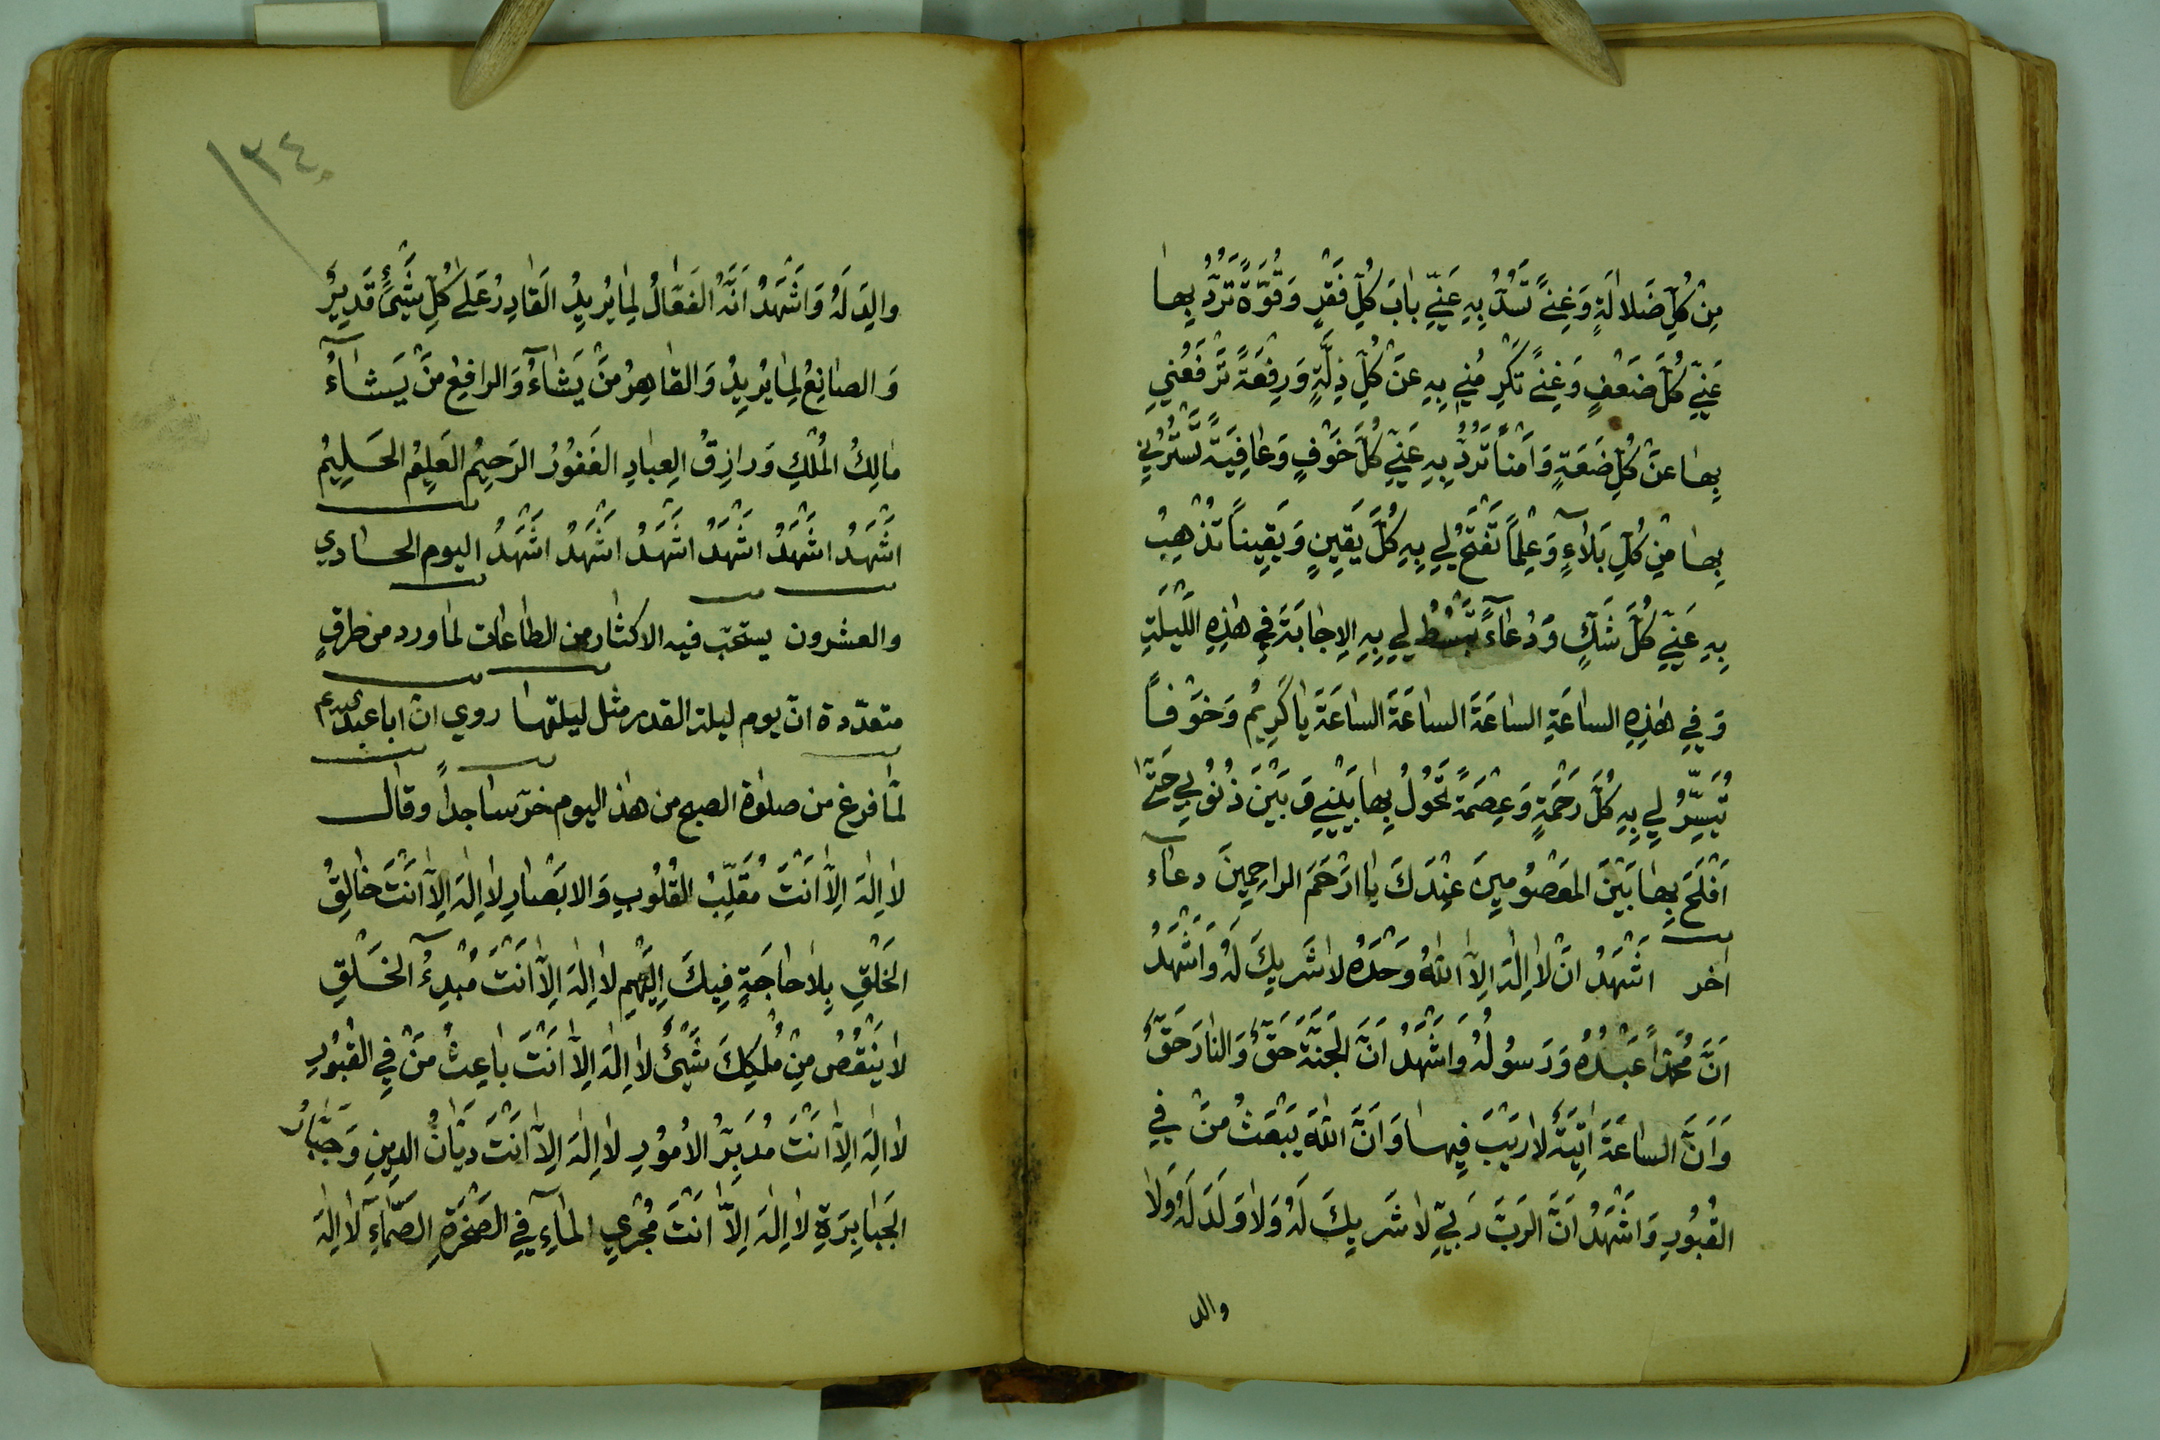 مِنْ كُلِّ ضَلَالَةٍ وَغِنىً تَسُدُّ بِهِ عَنِّي بَابَ كُلِّ فَقْرٍ وَقُوَّةً تَرُدُّ بِهَا
عَنِّي كُلَّ ضَعْفٍ وَغِنىً تُكْرِمُنِي بِهِ عَنْ كُلِّ ذِلَّةٍ وَرِفْعَةً تَرْفَعُنِي
بِهَا عَنْ كُلِّ ضَعَةٍ وَاَمْناً تَرُدُّ بِهِ عَنِّي كُلَّ خَوْفٍ وَعَافِيَةً تَسْتُرُنِي
بِهَا مِنْ كُلِّ بَلَاءٍ وَعِلْماً تَفْتَحُ لِي بِهِ كُلَّ يَقِينٍ وَيَقِيناً تُذْهِبُ
بِهِ عَنِّي كُلَّ شَكٍّ وَدُعَاءً تَبْسُطُ لِي بِهِ الاِجَابَةَ فِي هٰذِهِ اللَّيْلَةِ
وَفِي هٰذِهِ السَاعَةِ السَاعَةَ السَاعَةَ السَاعَةَ يَا كَرِيمُ وَخَوْفاً
تُيَسِّرُ لِي بِهِ كُلَّ رَحْمَةٍ وَعِصْمَةً تَحُولُ بِهَا بَيْنِي وَبَيْنَ ذُنُوبِي حَتّٰى
اُفْلِحَ بِهَا بَيْنَ المَعْصُومِينَ عِنْدَكَ يَا اَرْحَمَ الرَاحِمِينَ دعآء
اخر اَشْهَدُ اَنْ لَا اِلٰهَ اِلَّا اللهُ وَحْدَهُ لَا شَرِيكَ لَهُ وَاَشْهَدُ
اَنَّ مُحَمَّداً عَبْدُهُ وَرَسُولُهُ وَاَشْهَدُ اَنَّ الجَنَّةَ حَقٌّ وَالنَارَ حَقٌّ
وَاَنَّ السَاعَةَ اٰتِيَةٌ لَا رَيْبَ فِيهَا وَاَنَّ اللهَ يَبْعَثُ مَنْ فِي
القُبُورِ وَاَشْهَدُ اَنَّ الرَبَّ رَبِّي لَا شَرِيكَ لَهُ وَلَا وَلَدَ لَهُ وَلَا
والد
١٣٤
والِدَ لَهُ وَاَشْهَدُ اَنَّهُ الفَعَّالُ لِمَا يُرِيدُ القَادِرُ عَلٰى كُلِّ شَيْءٍ قَدِيرٌ
وَالصَانِعُ لِمَا يُرِيدُ وَالقَاهِرُ مَنْ يَشَاءُ وَالرَافِعُ مَنْ يَشَاءُ
مَالِكُ المُلْكِ وَرَازِقُ العِبَادِ الغَفُورُ الرَحِيمُ العَلِيمُ الحَلِيمُ
اَشْهَدُ اَشْهَدُ اَشْهَدُ اَشْهَدُ اَشْهَدُ اَشْهَدُ اليوم الحادي
والعشرون يستحبّ فيه الاكثار من الطاعات لما ورد من طرقٍ
متعدّدة انّ يوم ليلة القدر مثل ليلتها روي ان ابا عبد الله ع
لمّا فرغ من صلوٰة الصبح من هذا اليوم خرّ ساجداً وقال
لَا اِلٰهَ اِلَّا اَنْتَ مُقَلِّبُ القُلُوبِ وَالاَبْصَارِ لَا اِلٰهَ اِلَّا اَنْتَ خَالِقُ
الخَلْقِ بِلَا حَاجَةٍ فِيكَ اِلَيْهِم لَا اِلٰهَ اِلَّا اَنْتَ مُبْدِئُ الخَلْقِ
لَا يَنْقُصُ مِنْ مُلْكِكَ شَيْءٌ لَا اِلٰهَ اِلَّا اَنْتَ بَاعِثُ مَنْ فِي القُبُورِ
لَا اِلٰهَ اِلَّا اَنْتَ مُدَبِّرُ الاُمُورِ لَا اِلٰهَ اِلَّا اَنْتَ دَيَّانُ الدِينِ وَجَبَّارُ
الجَبَابِرَةِ لَا اِلٰهَ اِلَّا اَنْتَ مُجْرِي المَاءِ فِي الصَخْرَةِ الصَمَّاءِ لَا اِلٰهَ